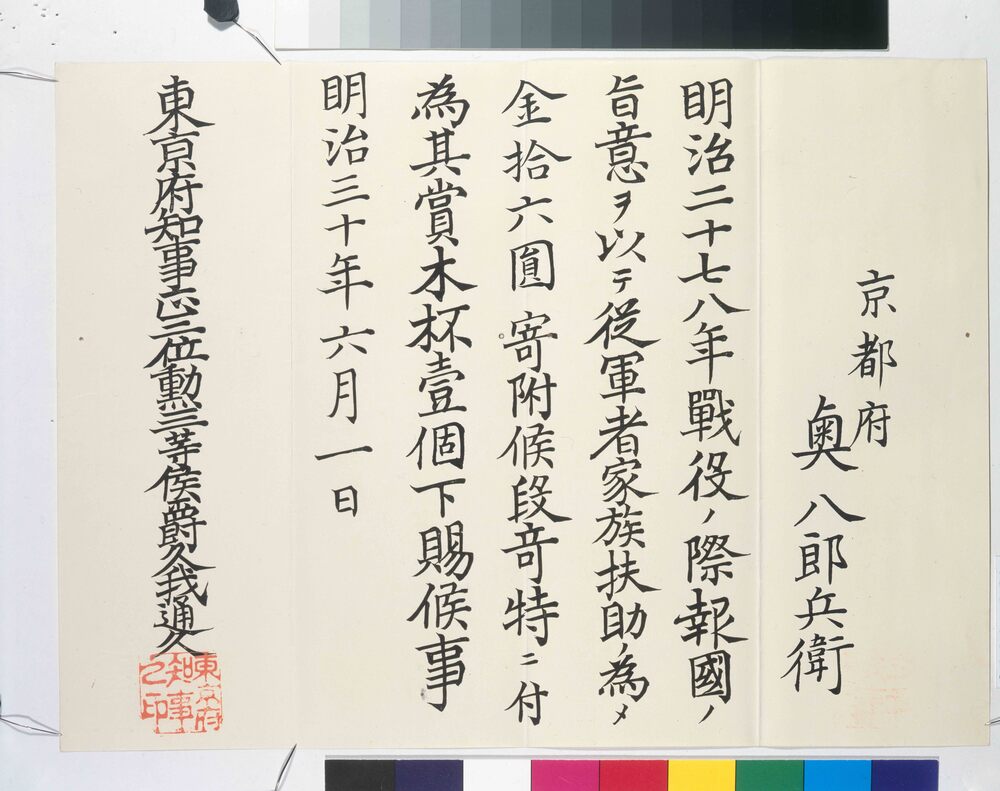 京都府
奥八郎兵衛
明治二十七八年戰役ノ際報國ノ
旨意ヲ以テ從軍者家族扶助ノ為メ
金拾六圓寄附候段竒特ニ付
為其賞木杯壹個下賜候事
明治三十年六月一日
東京府知事正三位勳三等侯爵久我通久
東京府
知事
之印